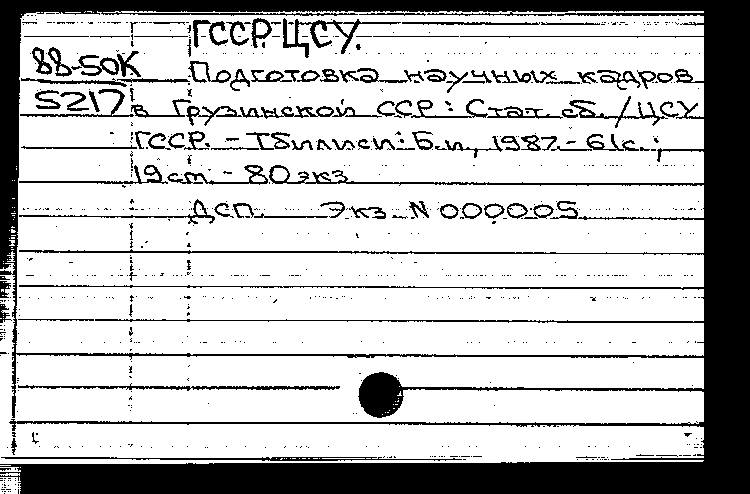 ГССР. ЦСУ.
88-50К
5217
Подготовка научных кадров
в Грузинской ССР: Стат. сб. / ЦСУ
ГССР. - Тбилиси: Б.и., 1987. - 61с.;
19 см. - 80 экз.
ДСП. Экз. N 000005.